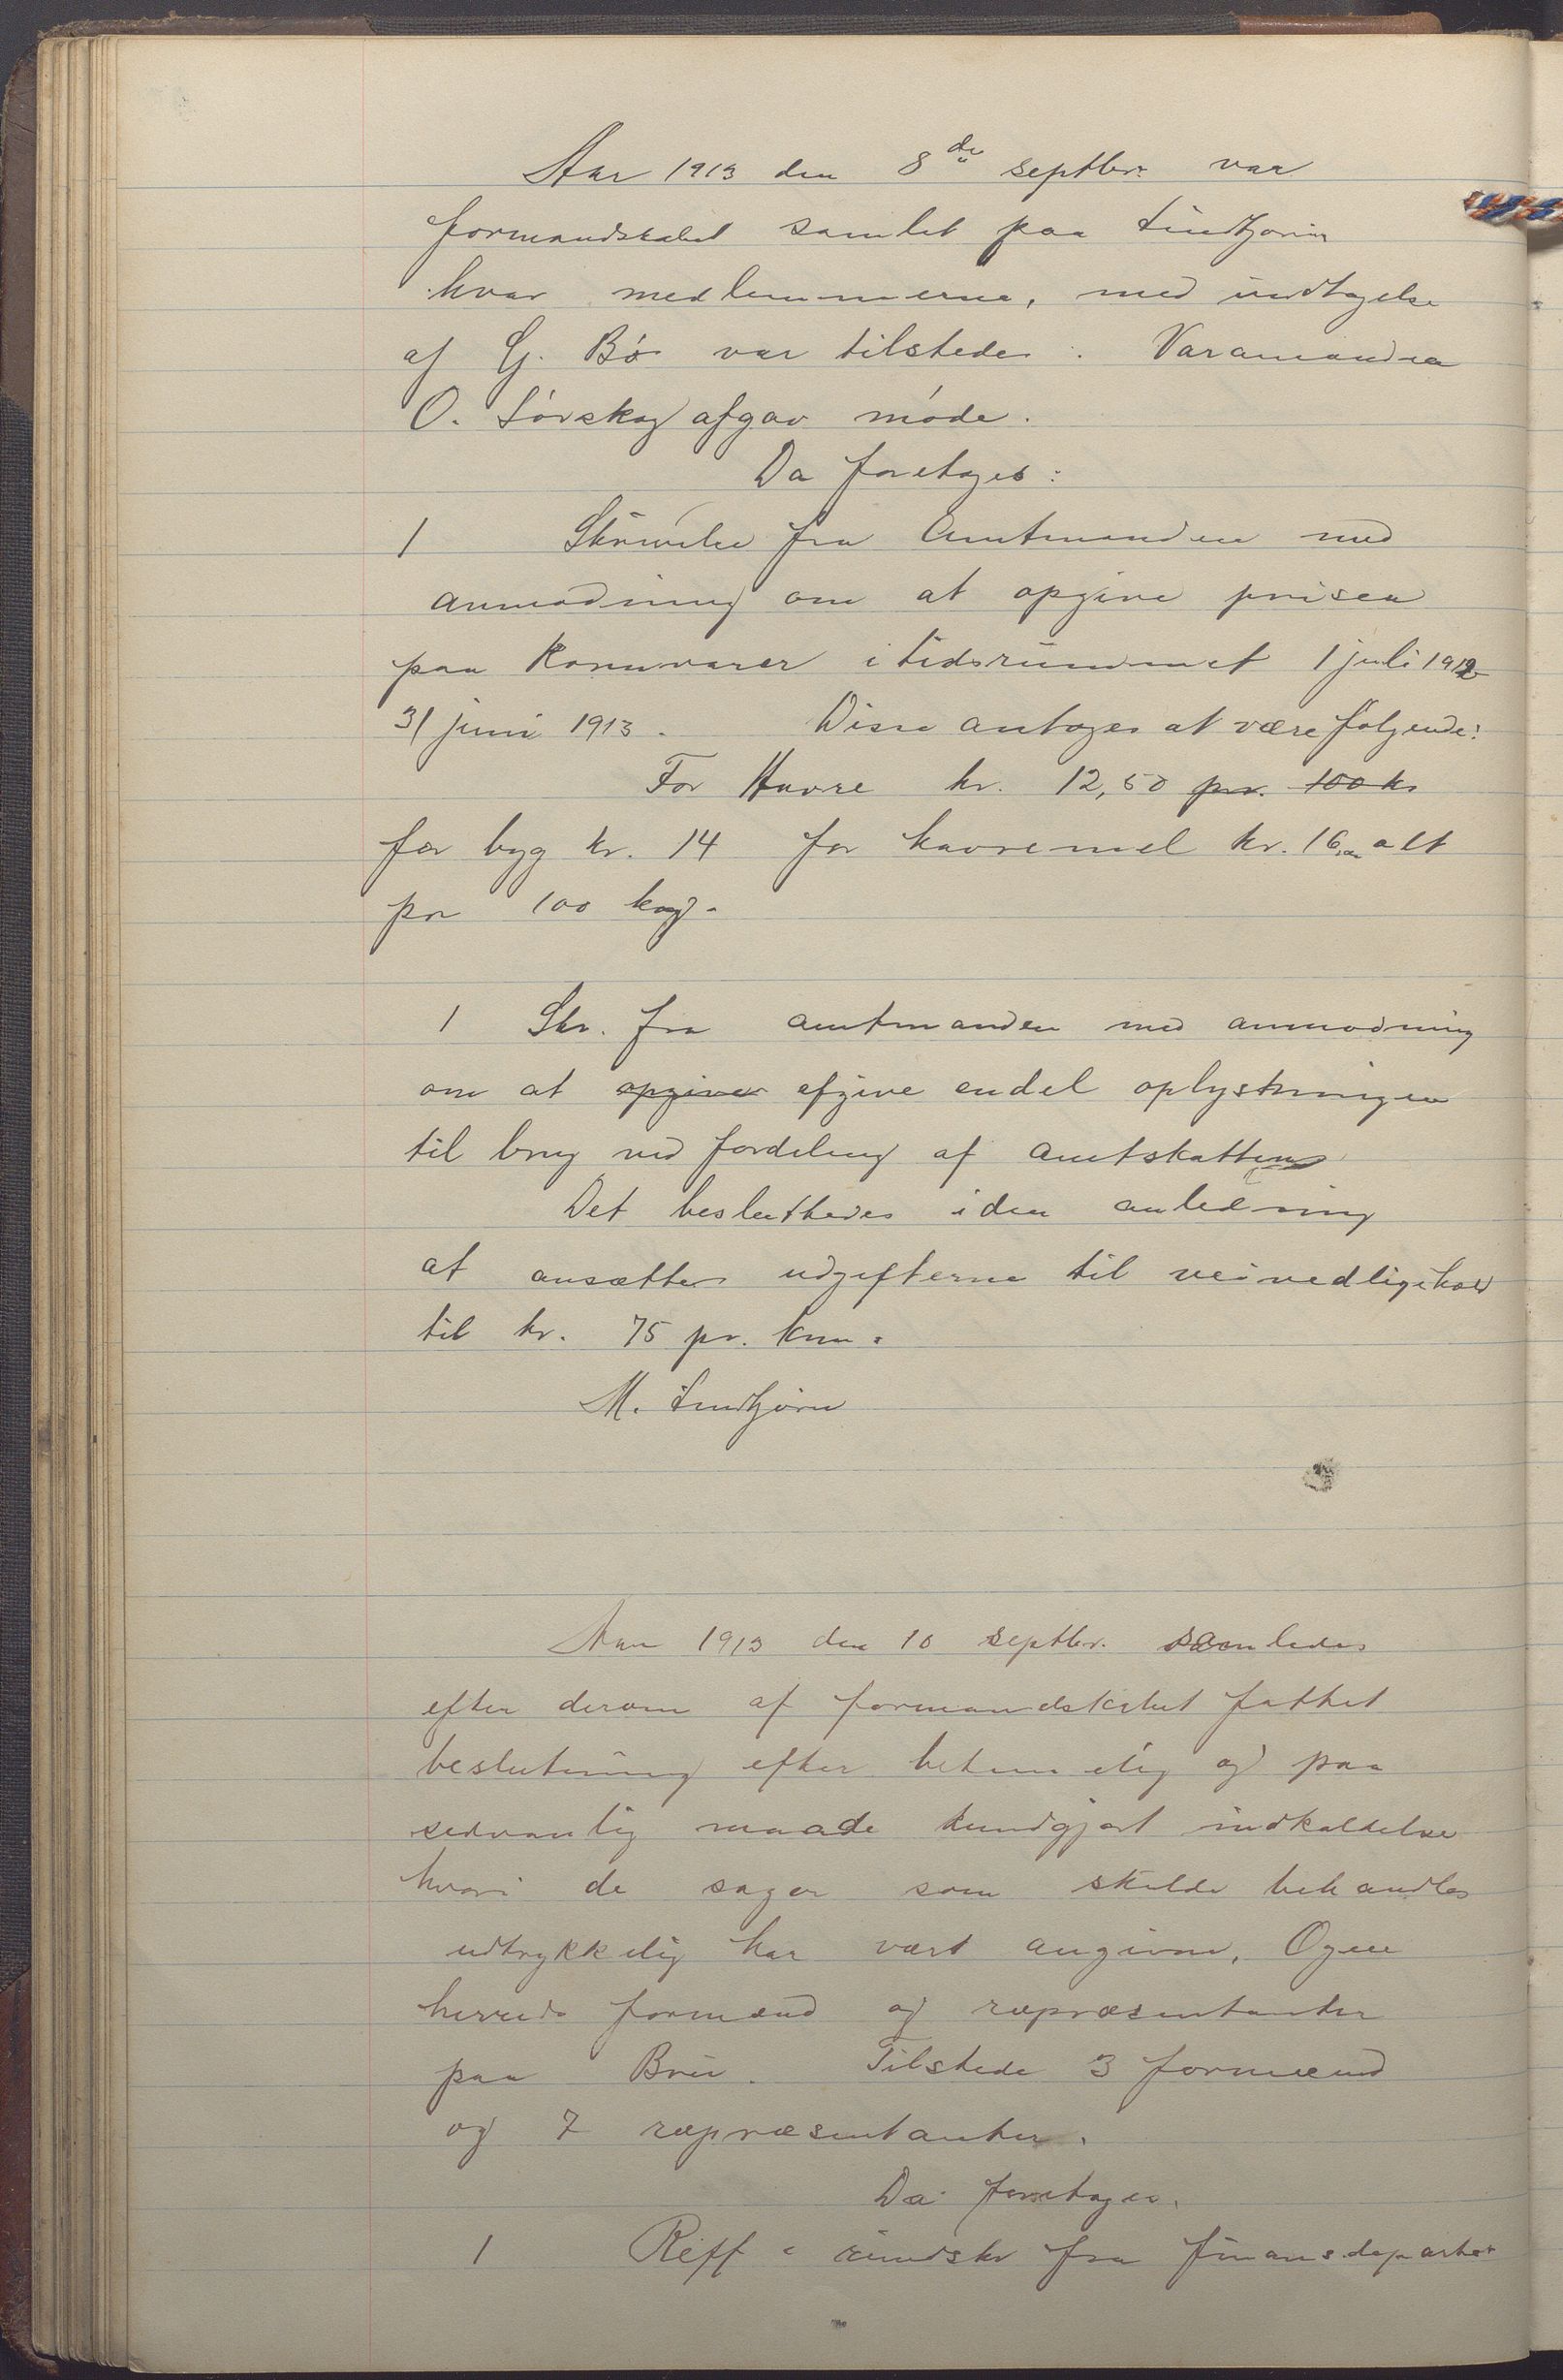 Aar 1913 den 8de septbr. var
formandskabet samlet paa Lindtjørn
hvor medlemmerne, med undtagelse
af G. Bø var tilstede. Varamanden
O. Løvskog afgav møde.
Da foretoges:
1 Skrivelse fra Amtmanden med
anmodning om at opgive prisen
paa kornvarer i tidsrummet 1 juli 1912
31 juni 1913. Disse antoges at være følgende:
For Havre kr. 12,50 pr. 100 k.
for byg kr. 14 for havremel kr. 16,00 alt
pr 100 kog.
1 Skr. fra amtmanden med anmodning
om at opgiver afgive endel oplystninger
til brug ved fordeling af amtskatten
Det besluttedes i den anledning
at ansætte udgifterne til veivedligehold
til kr. 75 pr. km.
M. Lindtjørn
Aar 1913 den 10 septbr. samledes
efter derom af formandskabet fattet
beslutning efter betimelig og paa
sedvanlig maade kundgjort indkaldelse
hvori de sager som skulde behandles
udtrykkelig har vært angivne, Ogne
herreds formænd og repræsentanter
paa Brui. Tilstede 3 formænd
og 7 repræsentanter.
Da foretoges.
1 Reff. rundskr fra finansdepartet